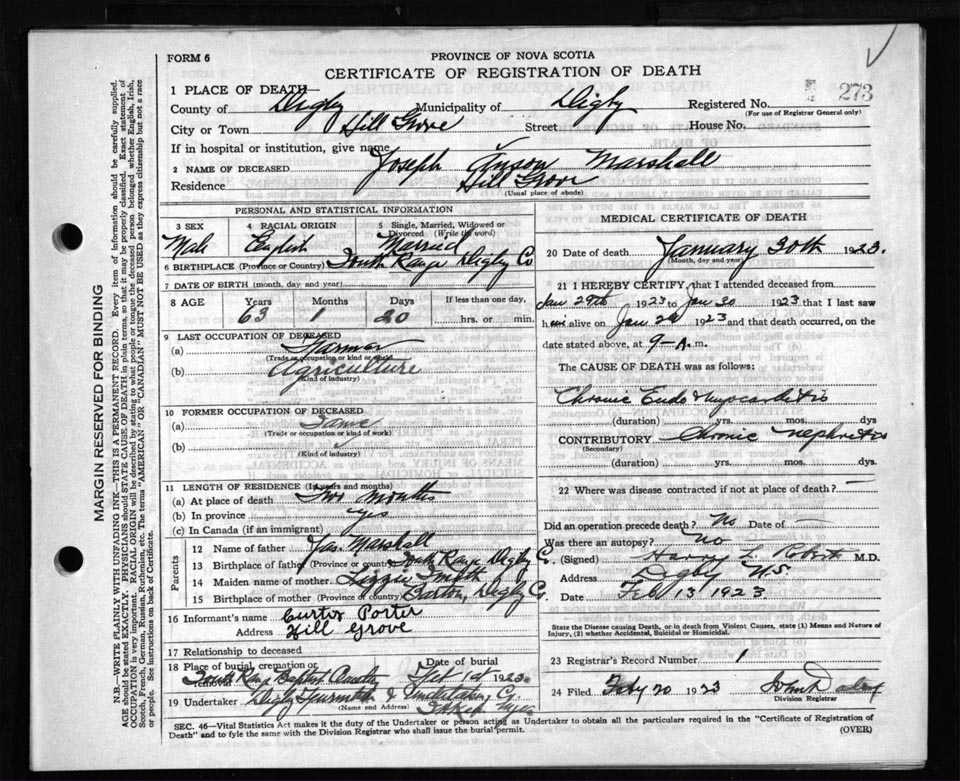 FORM 6
PROVINCE OF NOVA SCOTIA
CERTIFICATE OF REGISTRATION OF DEATH
1 PLACE OF DEATH—
County of Digby Municipality of Digby Registered No. 273
(For use of Registrar General only)
City or Town Hill Grove Street House No.
If in hospital or institution, give name
2 NAME OF DECEASED Joseph Anson Marshall
Residence Hill Grove
(Usual place of abode)
PERSONAL AND STATISTICAL INFORMATION
3 SEX 4 RACIAL ORIGIN 5 Single, Married, Widowed or Divorced (Write the word)
Male English Married
6 BIRTHPLACE (Province or Country) South Range Digby Co
7 DATE OF BIRTH (month, day and year)
8 AGE Years Months Days If less than one day,
63 1 20 hrs. or min.
9 LAST OCCUPATION OF DECEASED
(a) Farmer
(Trade or occupation or kind of work)
(b) Agriculture
(Kind of industry)
10 FORMER OCCUPATION OF DECEASED
(a) Same
(Trade or occupation or kind of work)
(b)
(Kind of industry)
11 LENGTH OF RESIDENCE (In years and months)
(a) At place of death Two months
(b) In province yes
(c) In Canada (if an immigrant)
Parents
12 Name of father Jas. Marshall
13 Birthplace of father (Province or country) South Range Digby Co.
14 Maiden name of mother Lizzie Smith
15 Birthplace of mother (Province or country) Barton, Digby Co.
16 Informant's name Curtis Porter
Address Hill Grove
17 Relationship to deceased
18 Place of burial, cremation or removal Date of burial
South Range Baptist Feb 1st 1923
19 Undertaker Digby Furniture & Undertaking Co.
(Name and Address)
MEDICAL CERTIFICATE OF DEATH
20 Date of death January 30th 1923.
(Month, day and year)
21 I HEREBY CERTIFY, that I attended deceased from
Jan 29th 1923 to Jan 30 1923 that I last saw
him alive on Jan 29 1923 and that death occurred, on the
date stated above, at 9-A.m.
The CAUSE OF DEATH was as follows:
Chronic Endo & myocarditis
(duration) yrs. mos. dys
CONTRIBUTORY Chronic nephritis
(Secondary)
(duration) yrs. mos. dys.
22 Where was disease contracted if not at place of death?
Did an operation precede death? No Date of —
Was there an autopsy? No
(Signed) Harry L. M.D.
Address Digby N.S.
Date Feb 13 1923
State the Disease causing Death, or in death from Violent Causes, state (1) Means and Nature of Injury, (2) whether Accidental, Suicidal or Homicidal.
23 Registrar's Record Number 1
24 Filed Feby 20 1923 John
Division Registrar
SEC. 46—Vital Statistics Act makes it the duty of the Undertaker or person acting as Undertaker to obtain all the particulars required in the "Certificate of Registration of
Death" and to fyle the same with the Division Registrar who shall issue the burial permit.
(OVER)
MARGIN RESERVED FOR BINDING
N.B.—WRITE PLAINLY WITH UNFADING INK—THIS IS A PERMANENT RECORD. Every item of information should be carefully supplied.
AGE should be stated EXACTLY. PHYSICIANS should STATE CAUSE OF DEATH in plain terms, so that it may be properly classified. Exact statement of
OCCUPATION is very important. RACIAL ORIGIN will be described by stating to what people or tongue the deceased person belonged whether English, Irish,
Scotch, French, German, Russian, Ruthenian, etc. The terms "AMERICAN" OR "CANADIAN" MUST NOT BE USED as they express citizenship but not a race
or people. See instructions on back of Certificate.